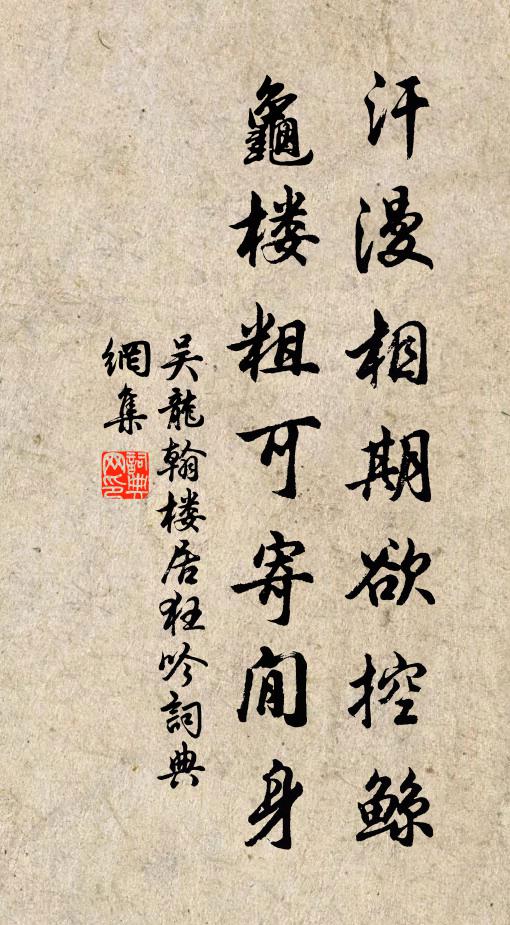 汗漫相期欲控鲸
龜楼粗可寄閒身
吴龍翰楼居狂吟詞典
網集
詞典网印